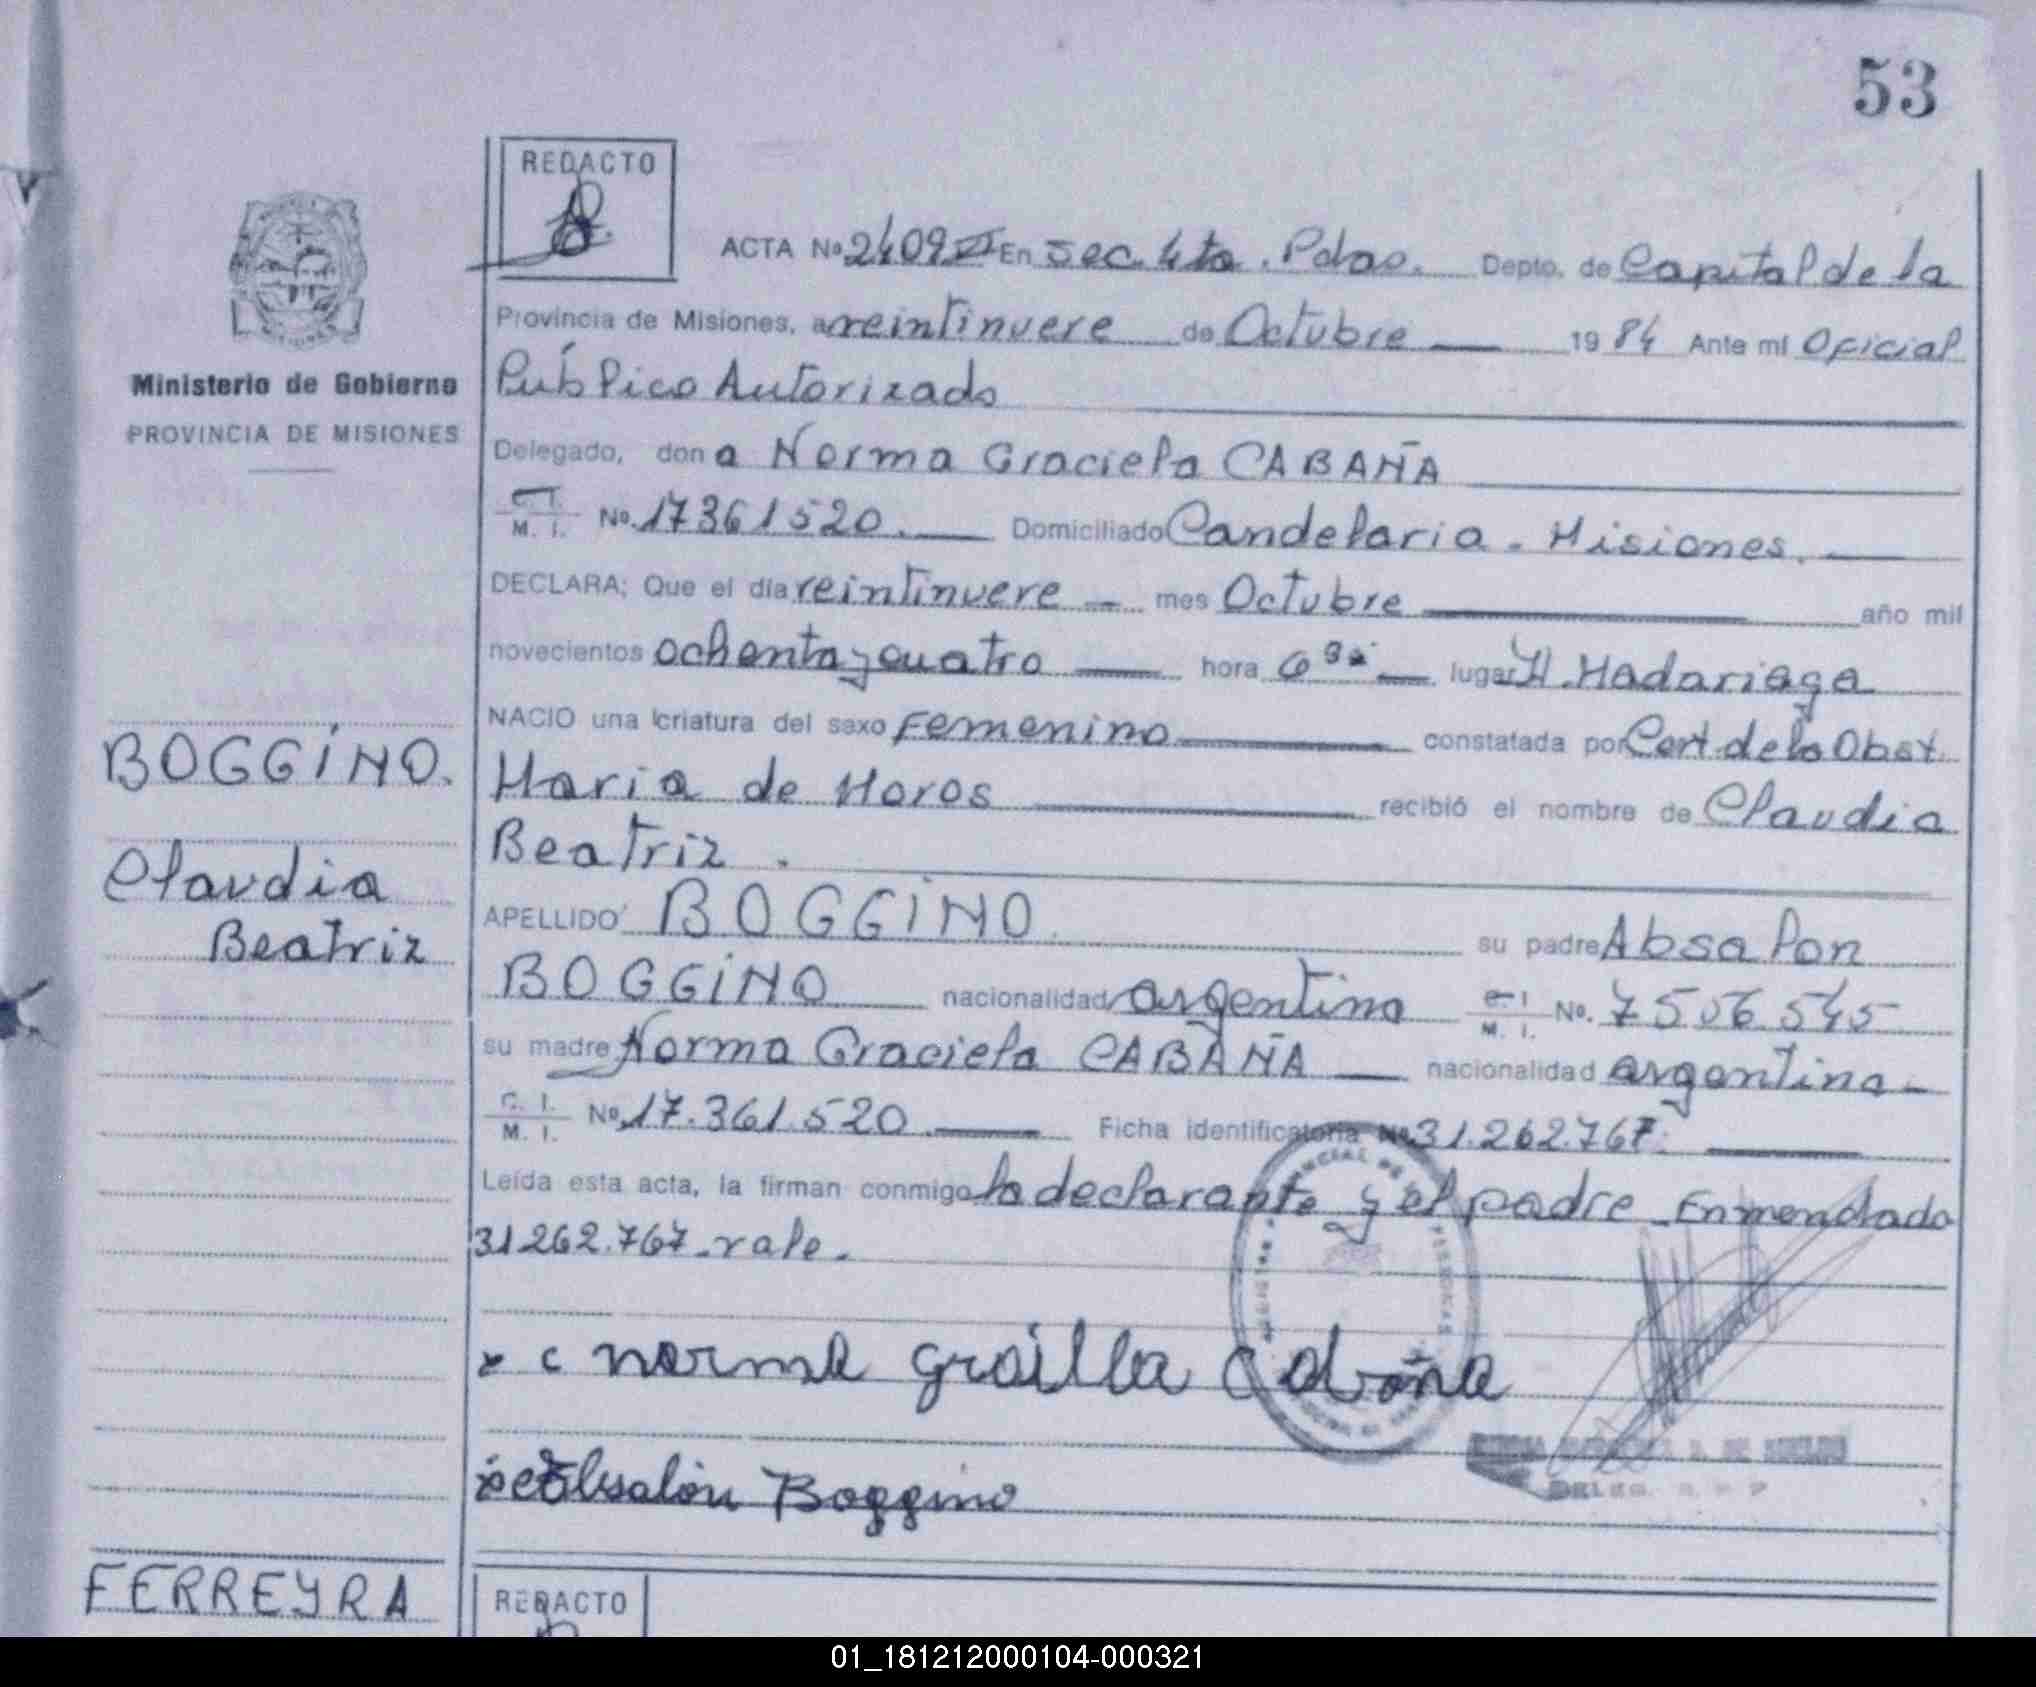 53
REDACTO
ACTA No 2409 VI En Sec. 4ta. Pdas. Depto. de Capital de la
Provincia de Misiones, a veintinueve de Octubre 1984 Ante mí Oficial
Ministerio de Gobierno
PROVINCIA DE MISIONES
Público Autorizado
Delegado, don a Norma Graciela CABAÑA
C. I.
M. I. No. 17361520. Domiciliado Candelaria - Misiones.
DECLARA; Que el día veintinueve mes Octubre año mil
novecientos ochenta y cuatro hora 6 lugar H. Madariaga
NACIO una criatura del sexo Femenino constatada por Cert. de la Obst.
BOGGINO.
María de Moros recibió el nombre de Claudia
Beatriz.
Claudia
Beatriz
APELLIDO BOGGINO su padre Absalon
BOGGINO nacionalidad argentina C. I.
M. I. No. 7506545
su madre Norma Graciela CABAÑA nacionalidad argentina
C. I.
M. I. No. 17.361.520 Ficha identificatoria No 31.262.767.
Leída esta acta, la firman conmigo la declarante y el padre. Enmendado
31262.767. vale.
norma grasilla Cabaña
Absalón Boggino
DE
FERREYRA
REDACTO
01_181212000104-000321